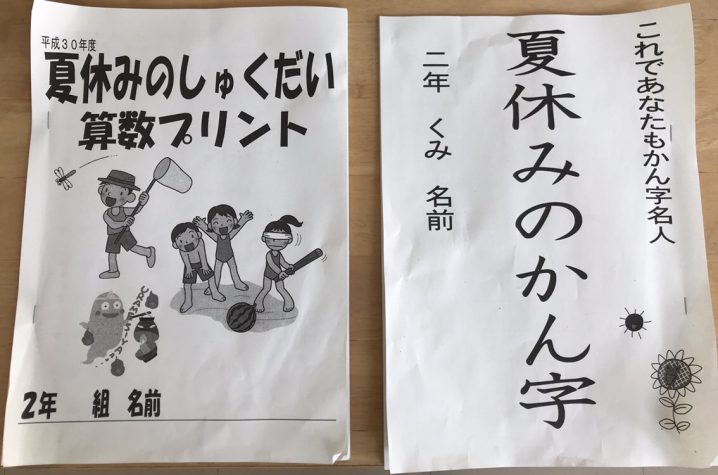 平成30年度
夏休みのしゅくだい
算数プリント
2年 組 名前
これであなたもかん字名人
夏休みのかん字
二年 くみ 名前